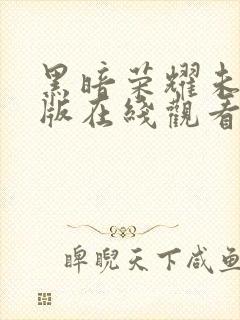 黑暗荣耀未
版在綫觀看
睥睨天下咸鱼